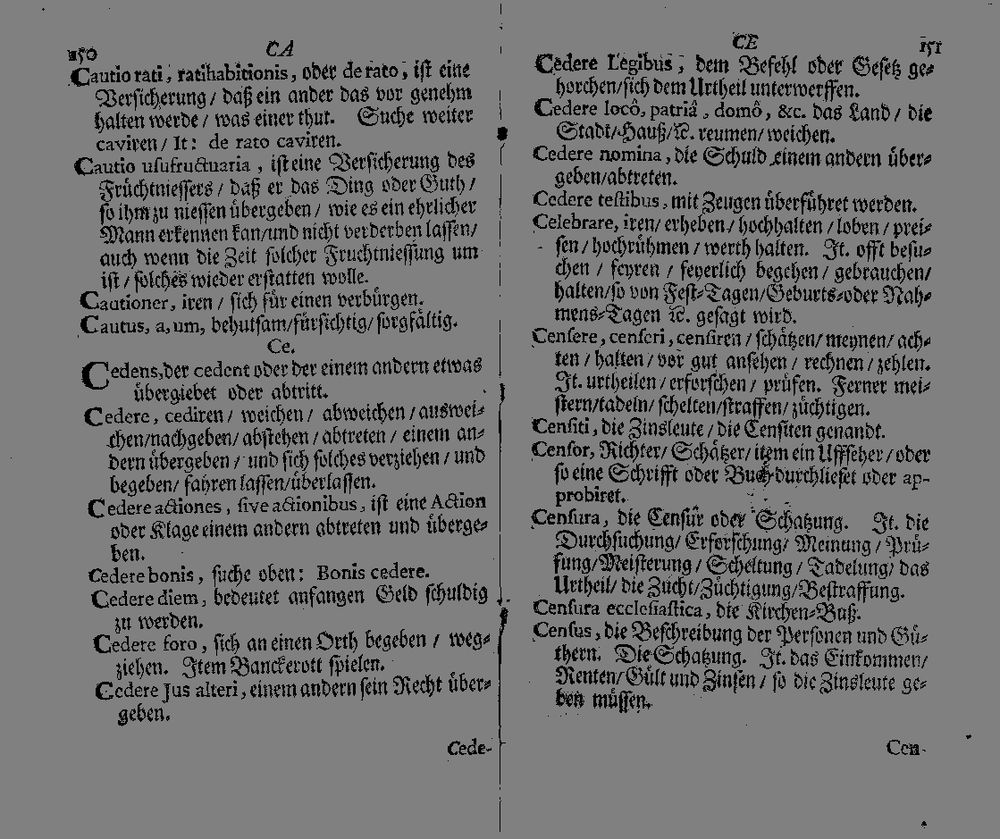 150 CA
Cautio rati, ratihabitionis, oder de rato, ist eine
Versicherung / daß ein ander das vor genehm
halten werde / was einer thut. Suche weiter
caviren / It: de rato caviren.
Cautio usufructuaria, ist eine Versicherung des
Früchtniessers / daß er das Ding oder Guth /
so ihm zu niessen übergeben / wie es ein ehrlicher
Mann erkennen kan/und nicht verderben lassen/
auch wenn die Zeit solcher Fruchtniessung um
ist / solches wieder erstatten wolle.
Cautioner, iren / sich für einen verbürgen.
Cautus, a, um, behutsam/fürsichtig/sorgfältig.
Ce.
Cedens, der cedent oder der einem andern etwas
übergiebet oder abtritt.
Cedere, cediren / weichen / abweichen / auswei-
chen/nachgeben/ abstehen / abtreten / einem an-
dern übergeben / und sich solches verziehen / und
begeben/ fahren lassen/überlassen.
Cedere actiones, sive actionibus, ist eine Action
oder Klage einem andern abtreten und überge-
ben.
Cedere bonis, suche oben: Bonis cedere.
Cedere diem, bedeutet anfangen Geld schuldig
zu werden.
Cedere foro, sich an einen Orth begeben / weg-
ziehen. Item Banckerott spielen.
Cedere Jus alteri, einem andern sein Recht über-
geben.
Cede-
CE 151
Cedere Legibus, dem Befehl oder Gesetz ge-
horchen/sich dem Urtheil unterwerffen.
Cedere locô, patriâ, domô, &c. das Land / die
Stadt/Hauß/ꝛc. reumen/weichen.
Cedere nomina, die Schuld einem andern über-
geben/abtreten.
Cedere testibus, mit Zeugen überführet werden.
Celebrare, iren/ erheben/ hochhalten / loben / prei-
sen / hochrühmen / werth halten. It. offt besu-
chen / feyren / feyerlich begehen / gebrauchen/
halten/so von Fest-Tagen/Geburts-oder Nah-
mens-Tagen ꝛc. gesagt wird.
Censere, censeri, censiren / schätzen/ meynen/ ach-
ten / halten / vor gut ansehen / rechnen / zehlen.
It. urtheilen / erforschen / prüfen. Ferner mei-
stern/tadeln/ schelten/straffen/ züchtigen.
Censiti, die Zinsleute / die Censiten genandt.
Censor, Richter/ Schätzer/ item ein Uffseher/ oder
so eine Schrifft oder Buch durchlieset oder ap-
probiret.
Censura, die Censur oder Schatzung. It. die
Durchsuchung/ Erforschung/ Meinung / Prü-
fung/Meisterung / Scheltung / Tadelung/ das
Urtheil/ die Zucht/Züchtigung/Bestraffung.
Censura ecclesiastica, die Kirchen-Buß.
Census, die Beschreibung der Personen und Gü-
thern. Die Schatzung. It. das Einkommen/
Renten/Gült und Zinsen / so die Zinsleute ge-
ben müssen.
Cen-